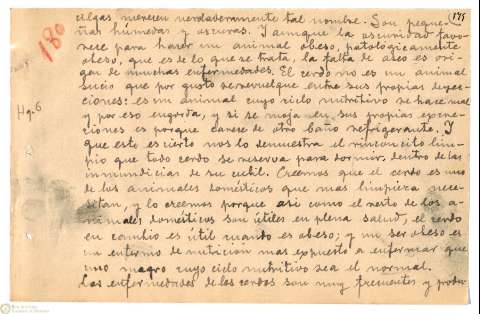 175
180
cilgas merecen verdaderamente tal nombre. Son peque-
ñas húmedas y oscuras. Y aunque la oscuridad favo-
rece para hacer un animal obeso, patologicamente
obeso, que es de lo que se trata, la falta de aseo es ori-
gen de muchas enfermedades. El cerdo no es un animal
sucio que por gusto se revuelque entre sus propias deyec-
ciones: es un animal cuyo ciclo nutritivo se hace mal
Hg. 6
y por eso engorda, y si se moja en sus propias excre-
ciones es porque carece de otro baño refrigerante. Y
que esto es cierto nos lo demuestra el rinconcito lim-
pio que todo cerdo se reserva para dormir, dentro de las
inmundicias de su cubil. Creemos que el cerdo es uno
de los animales domésticos que mas limpieza nece-
sitan, y lo creemos porque asi como el resto de los a-
nimales domésticos son útiles en plena salud, el cerdo
en cambio es útil cuando es obeso; y un ser obeso es
un enfermo de nutrición mas expuesto a enfermar que
uno magro cuyo ciclo nutritivo sea el normal.
Las enfermedades de los cerdos son muy frecuentes y